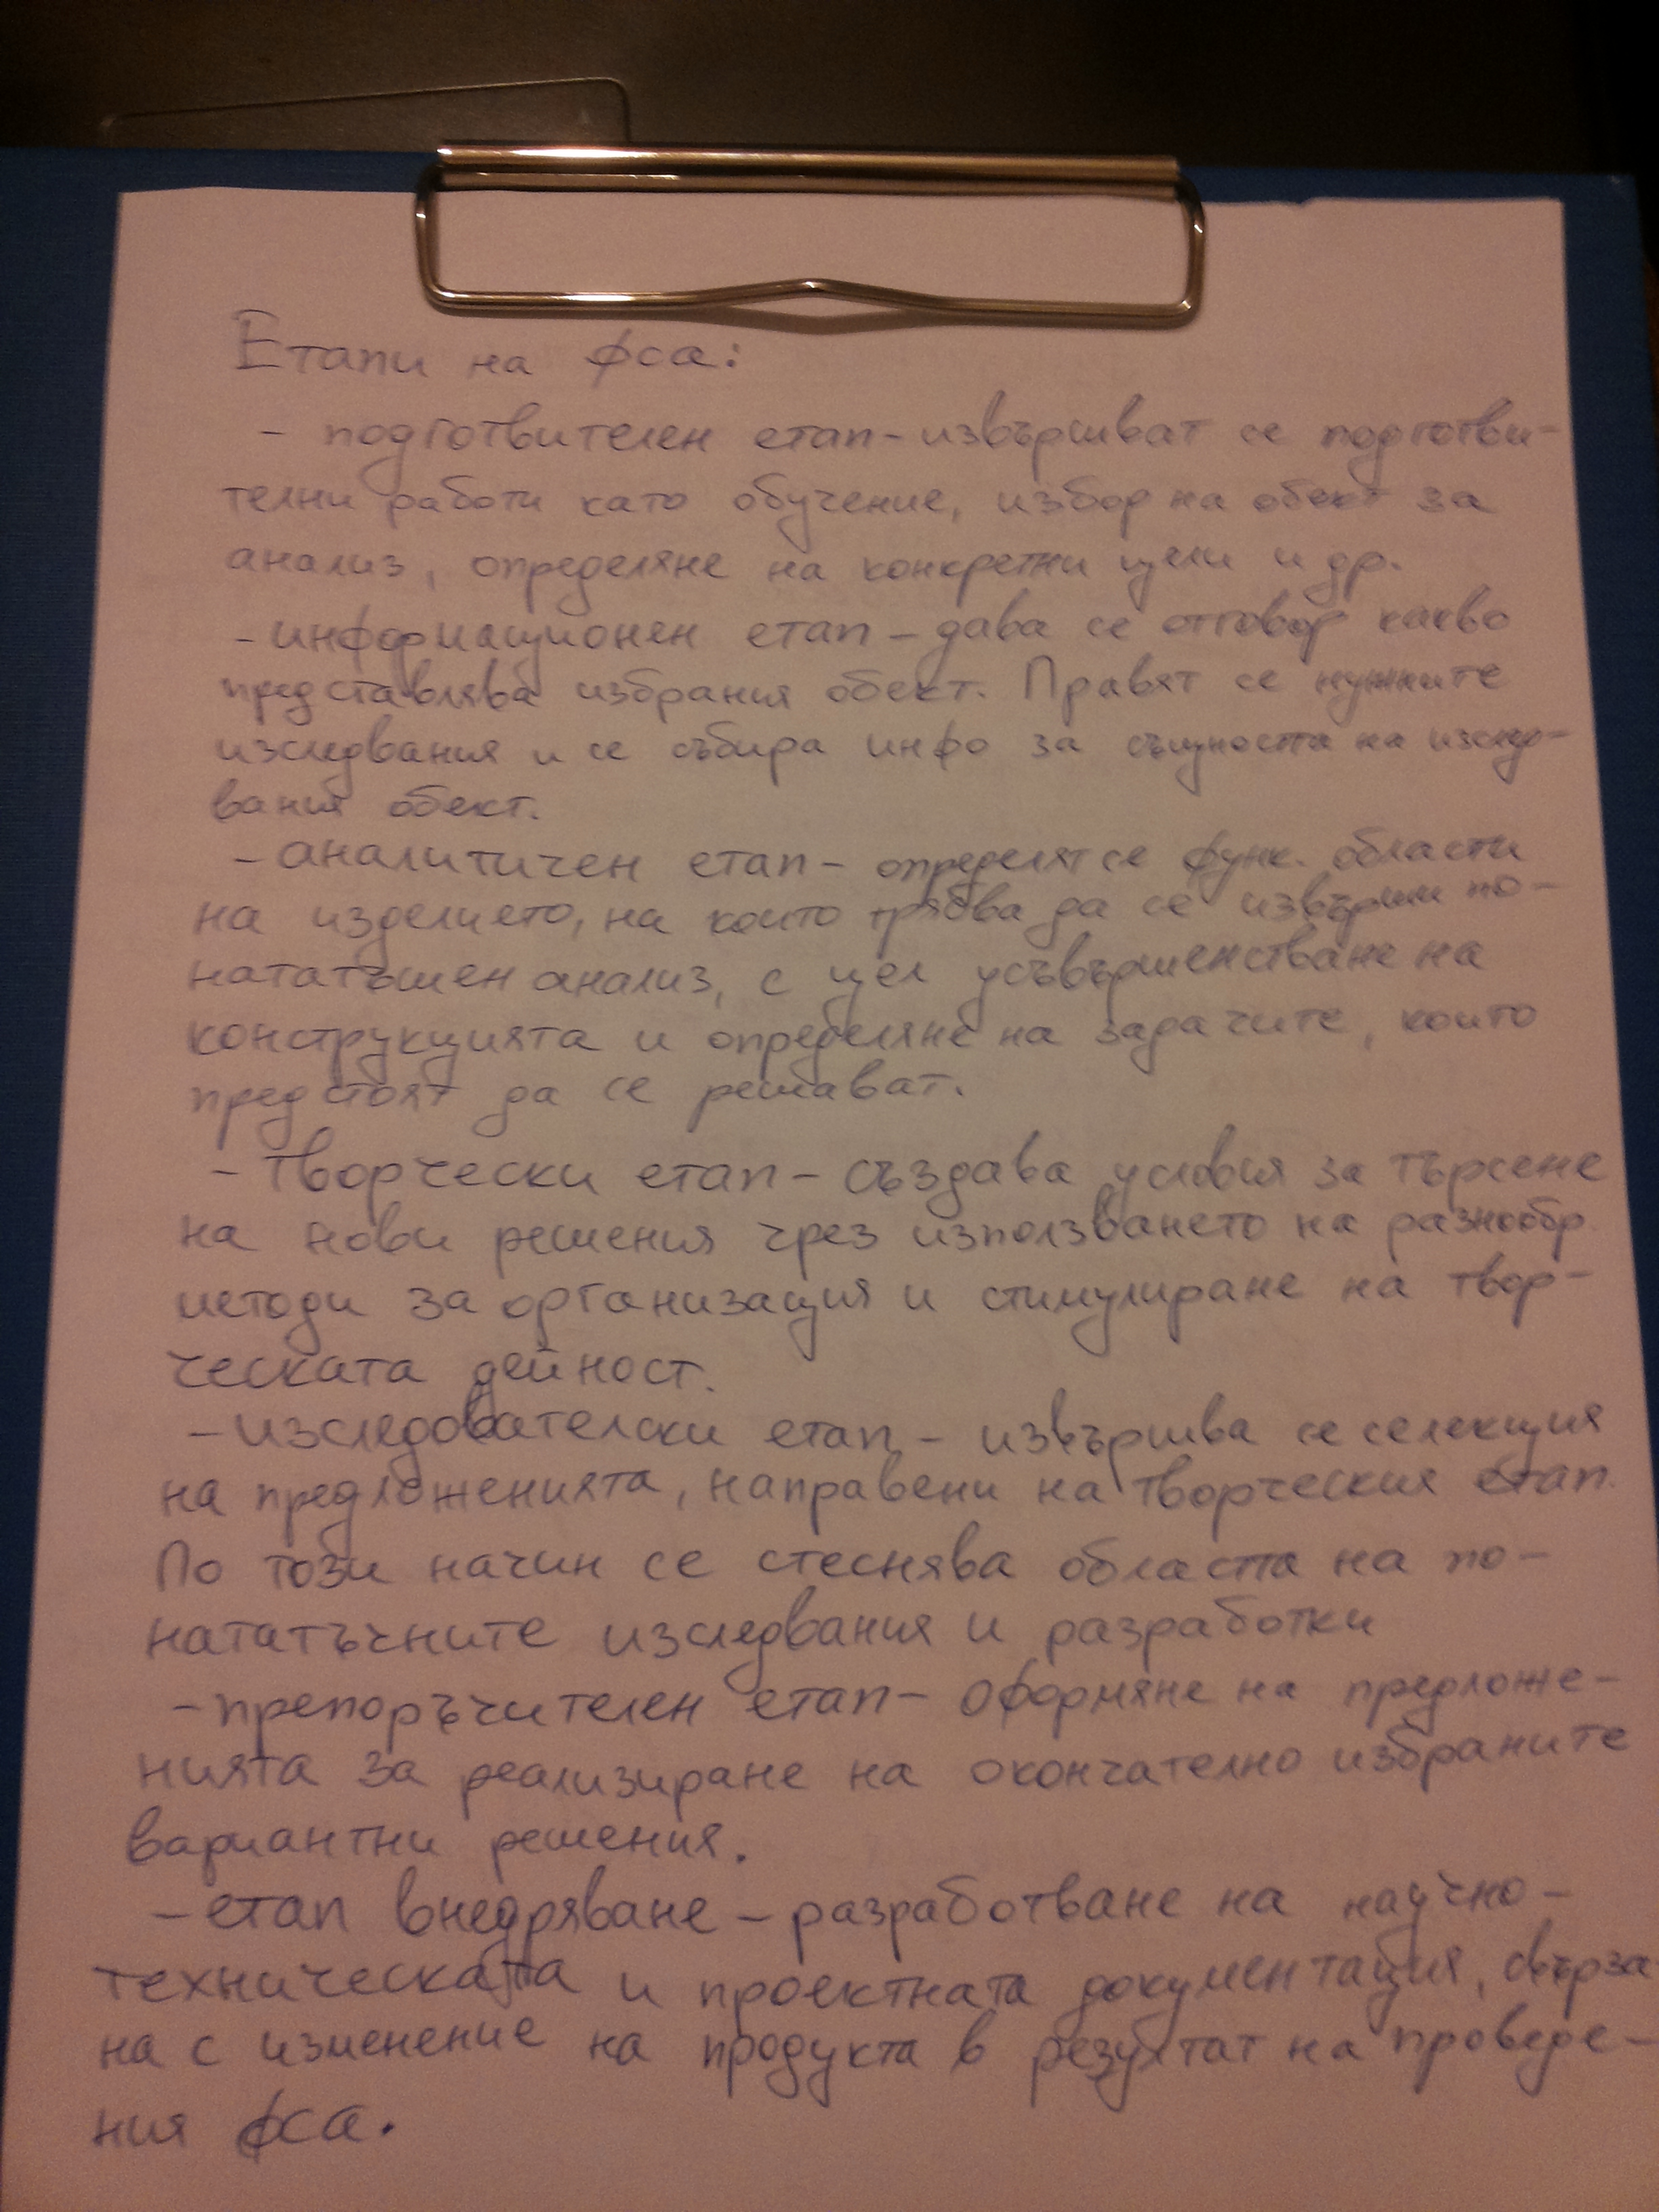 Етапи на фса:
- подготвителен етап - извършват се подготви-
телни работи като обучение, избор на обект за
анализ, определяне на конкретни цели и др.
- информационен етап - дава се отговор какво
представлява избрания обект. Правят се нужните
изследвания и се събира инфо за същността на изслед-
вания обект.
- аналитичен етап - определят се функ. области
на изделието, на които трябва да се извърши по-
нататъшен анализ, с цел усъвършенстване на
конструкцията и определяне на задачите, които
предстоят да се решават.
- творчески етап - създава условия за търсене
на нови решения чрез използването на разнообр.
методи за организация и стимулиране на твор-
ческата дейност.
- изследователски етап - извършва се селекция
на предложенията, направени на творческия етап.
По този начин се стеснява областта на по-
нататъчните изследвания и разработки
- препоръчителен етап - оформяне на предложе-
нията за реализиране на окончателно избраните
вариантни решения.
- етап внедряване - разработване на научно-
техническата и проектната документация, свърза-
на с изменение на продукта в резултат на проведе-
ния фса.